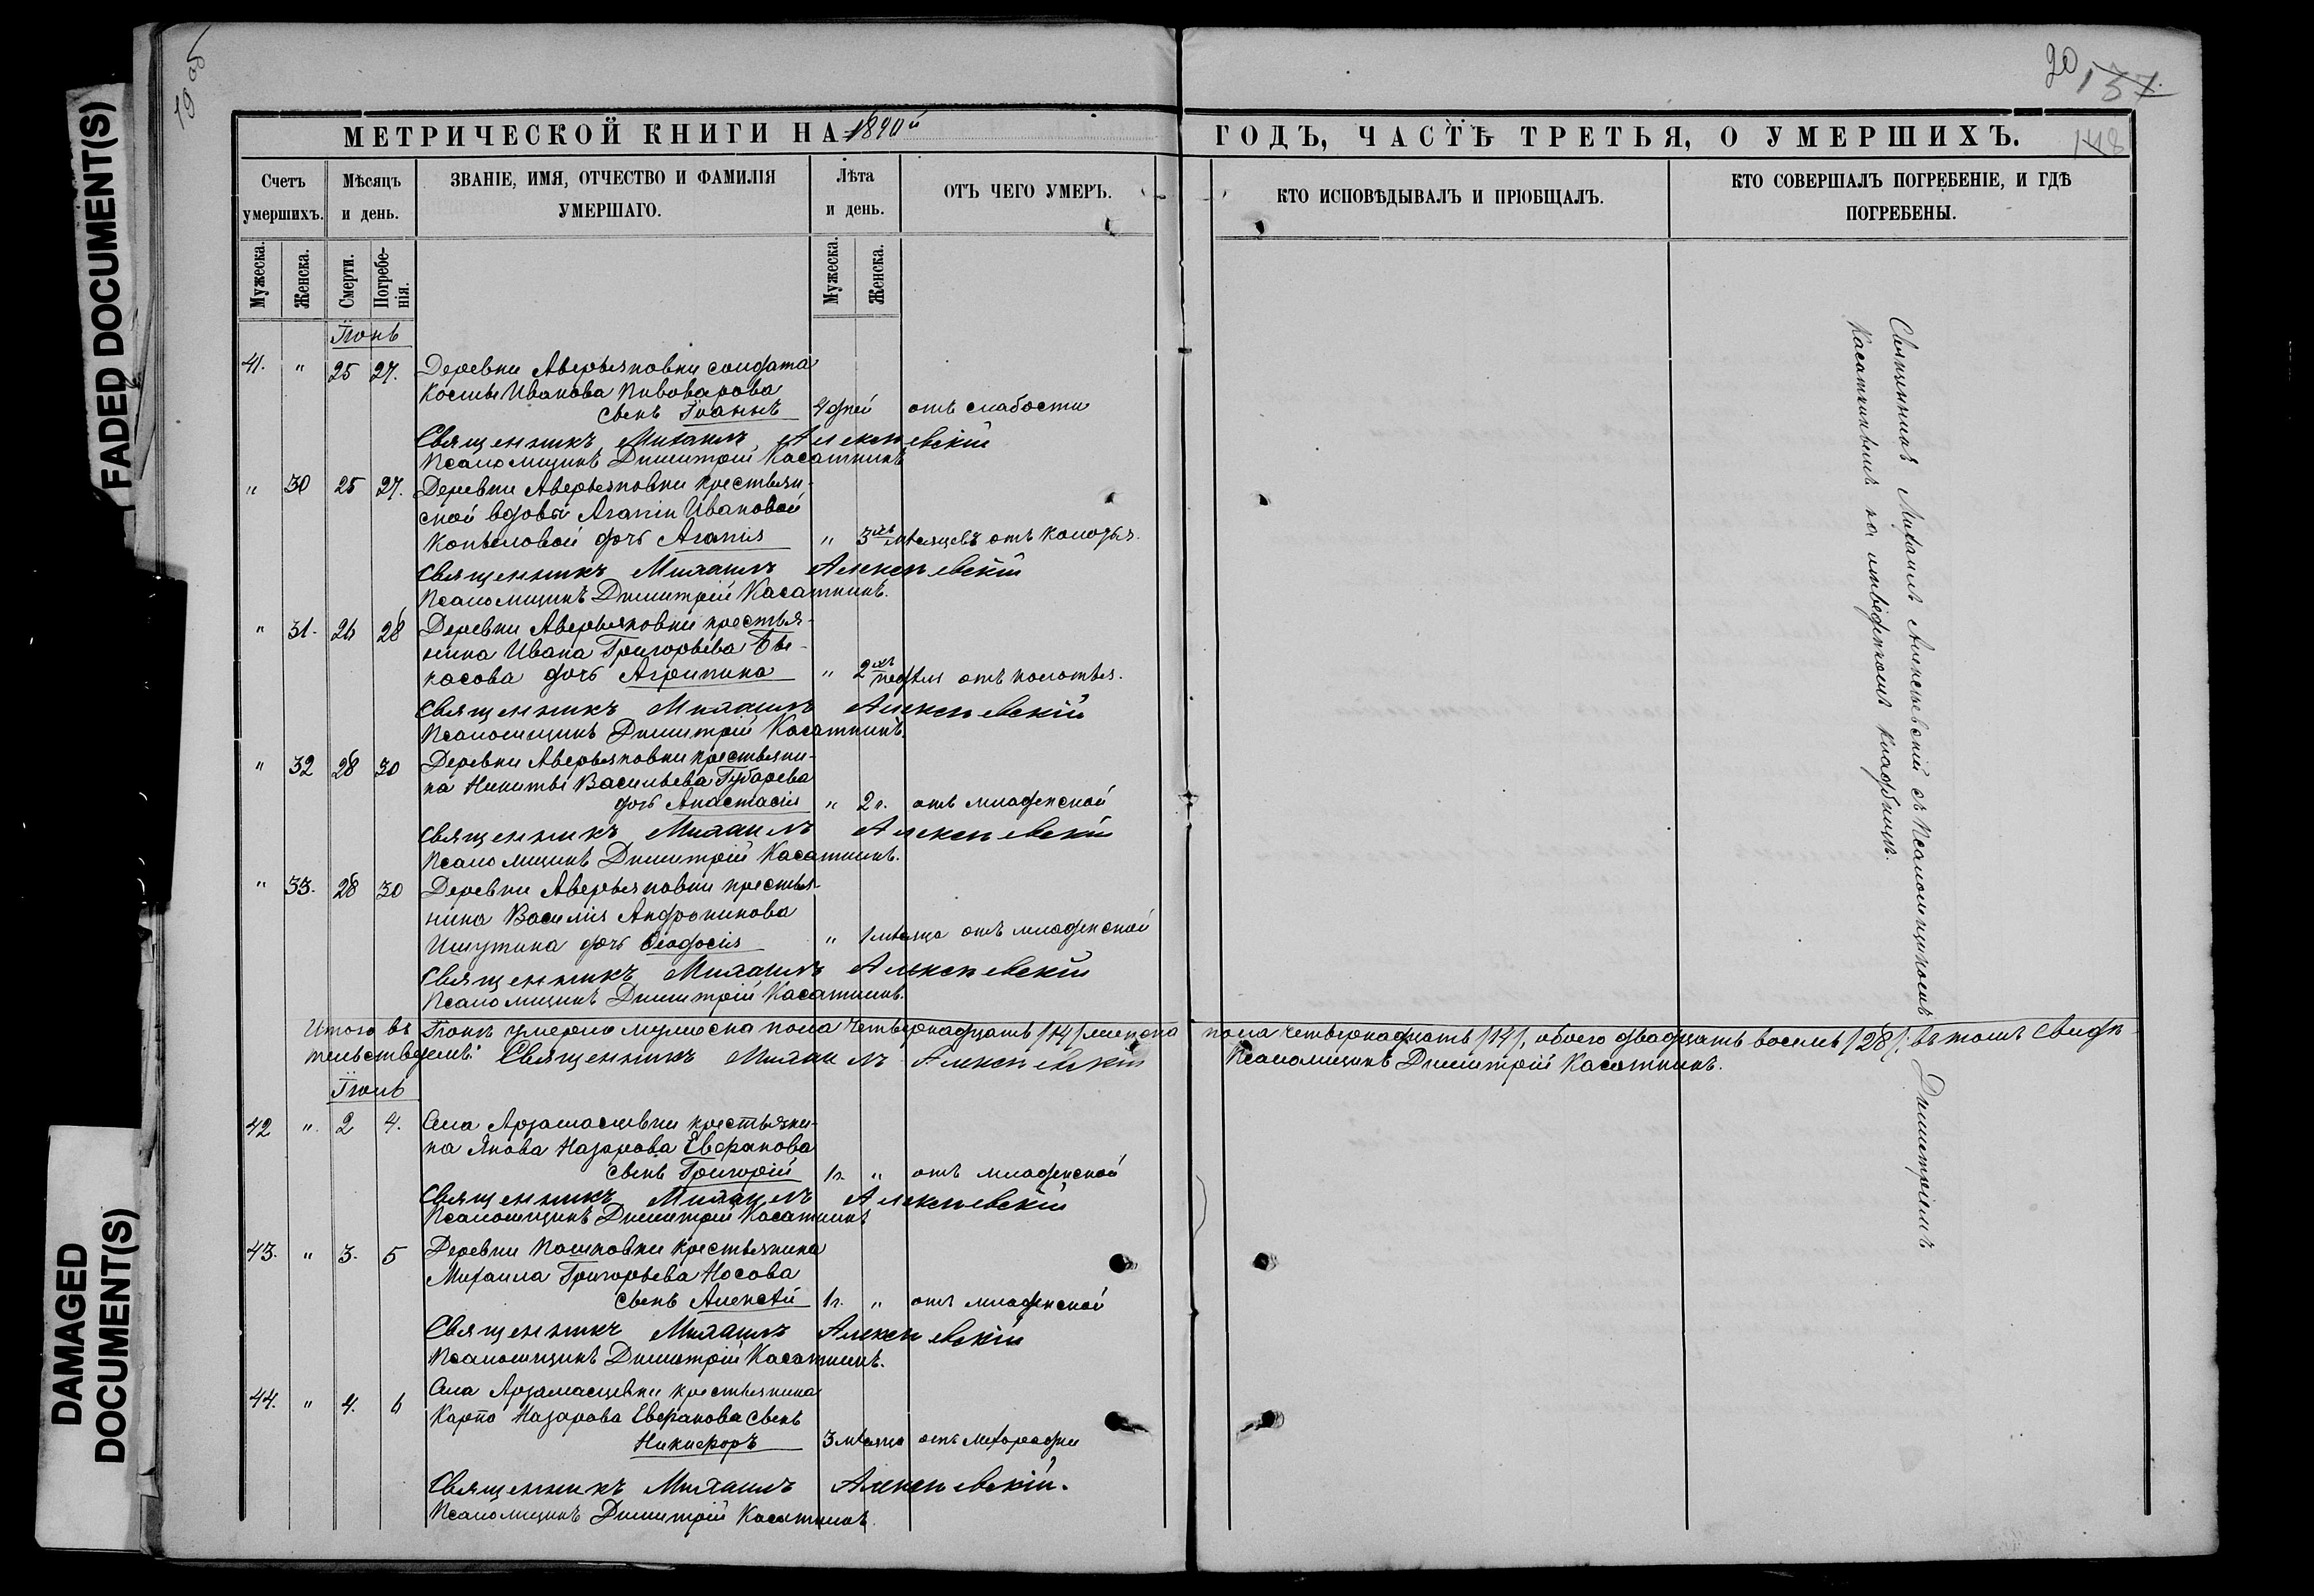 FADED DOCUMENT(S)
DAMAGED
DOCUMENT(S)
19 об
20
137.
148
МЕТРИЧЕСКОЙ КНИГИ НА 1890й
ГОДЪ, ЧАСТЬ ТРЕТЬЯ, О УМЕРШИХЪ.
Счетъ
умершихъ.
Мѣсяцъ
и день.
ЗВАНІЕ, ИМЯ, ОТЧЕСТВО И ФАМИЛІЯ
УМЕРШАГО.
Лѣта
и день.
ОТЪ ЧЕГО УМЕРЪ.
КТО ИСПОВѢДЫВАЛЪ И ПРІОБЩАЛЪ.
КТО СОВЕРШАЛЪ ПОГРЕБЕНІЕ, И ГДѢ
ПОГРЕБЕНЫ.
Мужеска.
Женска.
Смерти.
Погребе-
нія.
Мужеска.
Женска.
Іюнь
41. " 25 27. Деревни Аверьяновки солдата
Косьмы Иванова Пивоварова
сынъ Іоаннъ 4 дней отъ слабости
Священникъ Михаилъ Алексѣевскій
Псаломщикъ Димитрій Касаткинъ
" 30 25 27. Деревни Аверьяновки крестьян-
ской вдовы Агапіи Ивановой
Копыловой дочь Агапія " 3хъ мѣсяцевъ отъ колотья.
Священникъ Михаилъ Алексѣевскій
Псаломщикъ Димитрій Касаткинъ.
" 31. 26 28 Деревни Аверьяновки крестья-
нина Ивана Григорьева
касова дочь Агрипина " 2хъ недѣль отъ колотья.
Священникъ Михаилъ Алексѣевскій
Псаломщикъ Димитрій Касаткинъ.
" 32 28 30 Деревни Аверьяновки крестьяни-
на Никиты Васильева Губарева
дочь Анастасія " 2 г. отъ младенской
Священникъ Михаилъ Алексѣевскій
Псаломщикъ Димитрій Касаткинъ.
" 33. 28 30 Деревни Аверьяновки крестья-
нина Василія Андроникова
Ишутина дочь Ѳеодосія " 1 мѣсяца отъ младенской
Священникъ Михаилъ Алексѣевскій
Псаломщикъ Димитрій Касаткинъ.
Итого въ Іюнѣ умерло мужеска пола четырнадцать /14/ женска пола четырнадцать /14/, обоего двадцать восемь /28/. въ томъ свидѣ-
тельствуемъ: Священникъ Михаилъ Алексѣевскій Псаломщикъ Димитрій Касаткинъ.
Іюль
42 " 2 4. Села Арзамасцевки крестьяни-
на Якова Назарова Евфанова
сынъ Григорій 1 г. " отъ младенской
Священникъ Михаилъ Алексѣевскій
Псаломщикъ Димитрій Касаткинъ
43. " 3. 5 Деревни крестьянина
Михаила Григорьева Носова
сынъ Алексѣй 1 г. " отъ младенской
Священникъ Михаилъ Алексѣевскій
Псаломщикъ Димитрій Касаткинъ.
44. " 4. 6 Села Арзамасцевки крестьянина
Карпа Назарова Евфанова сынъ
Никифоръ 3 мѣсяца отъ лихорадки
Священникъ Михаилъ Алексѣевскій.
Псаломщикъ Димитрій Касаткинъ.
Священникъ Михаилъ Алексѣевскій съ Псаломщикомъ Димитріемъ
Касаткинымъ на отведенномъ кладбищѣ.